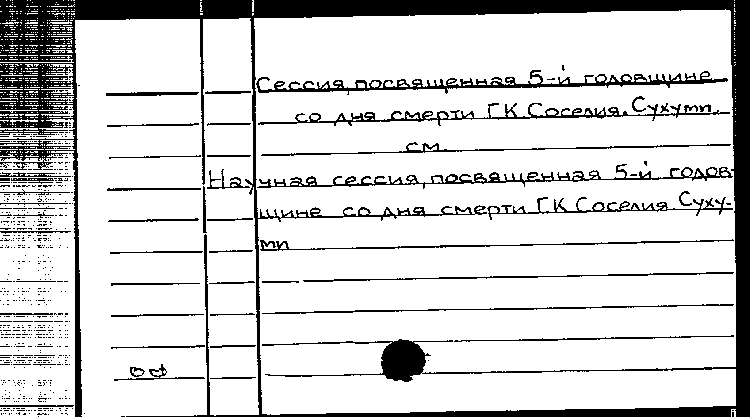 Сессия, посвященная 5-й годовщине
со дня смерти Г.К Соселия. Сухуми.
см.
Научная сессия, посвященная 5-й годов-
щине со дня смерти Г.К Соселия Суху-
ми